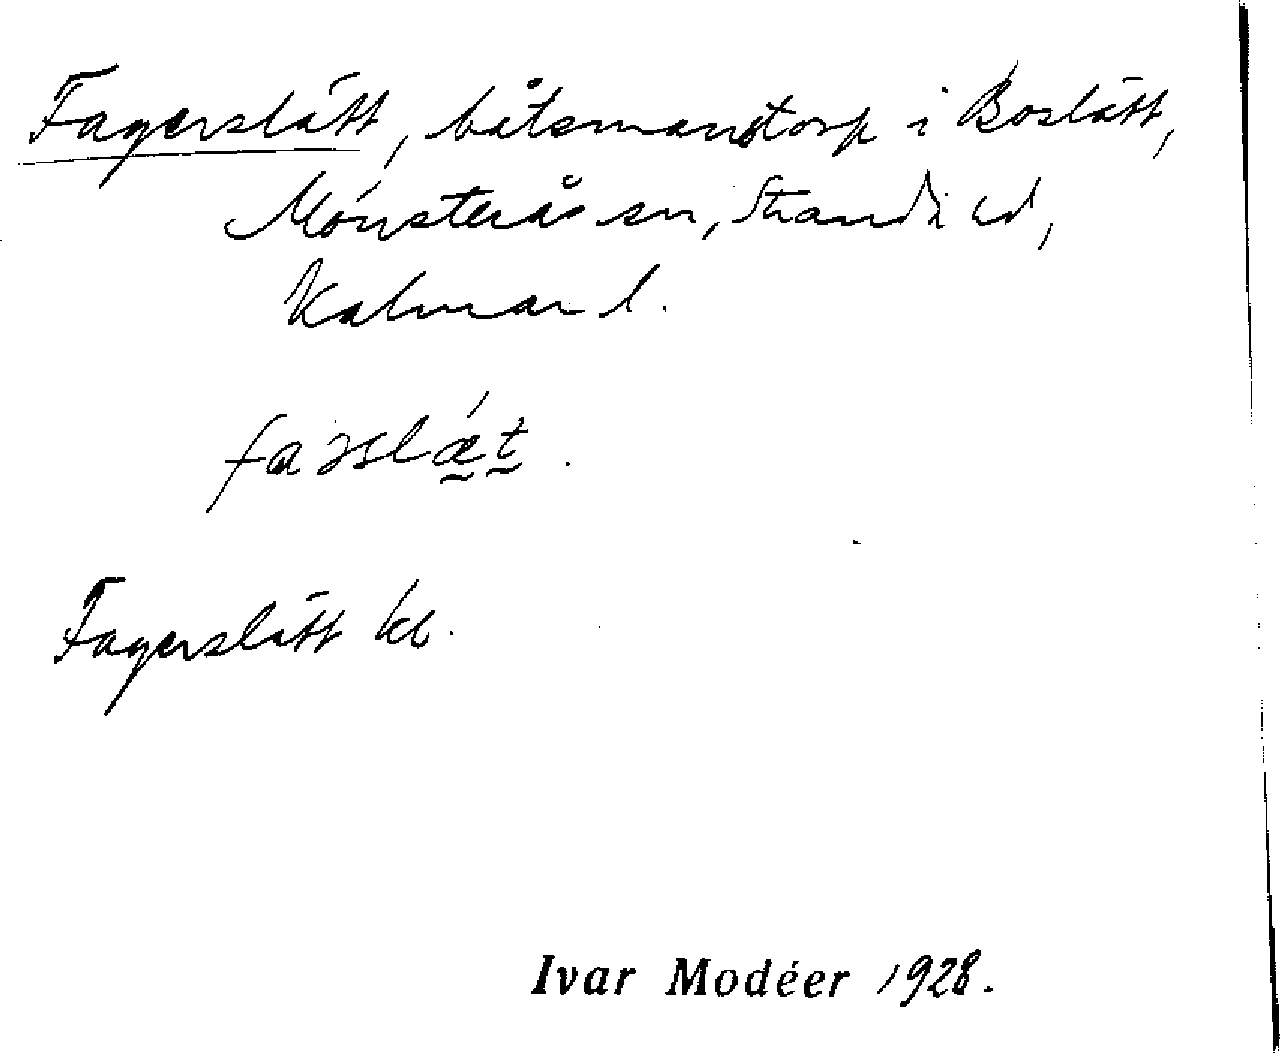 Fagerslätt, båtsmanstorp i Boslätt,
Mönsterås sn, Stranda hd,
Kalmar l.
Fagerslätt kb.
Ivar Modéer 1928.